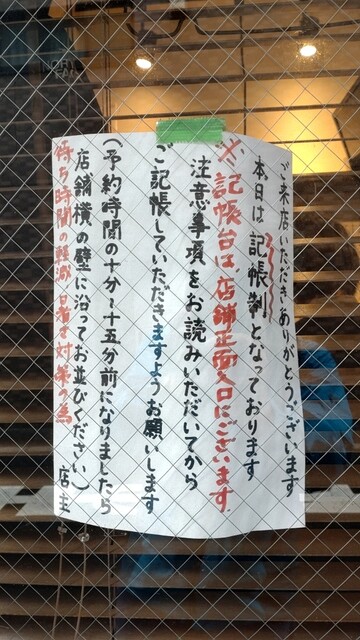 ご来店いただきありがとうございます
本日は記帳制となっております
※記帳台は店舗正面入口にございます
注意事項をお読みいただいてから
ご記帳していただきますようお願いします
(予約時間の十分～十五分前になりましたら
店舗横の壁に沿ってお並びください)
待ち時間の軽減、暑さ対策の為 店主